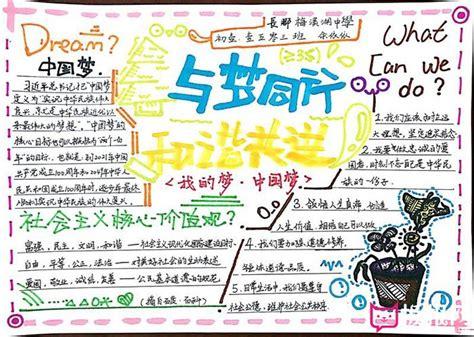 Dream?
中国梦:
习近平总书记把"中国梦"
定义为"实现中华民族伟大
复兴,就是中华民族近代以
来最伟大的梦想","中国梦的
核心目标也可以概括为"两个一百
年"的目标,也就是:到2021年中国
共产党成立100周年和2049年中华人
民共和国成立100周年时,逐步并最终
实现中华民族的伟大复兴
社会主义核心价值观?
富强,民主,文明,和谐——社会主义现代化国家建设目标
自由,平等,公正,法治——对美好社会的生动表述
爱国,敬业,诚信,友善——公民基本道德的规范
(摘自百度、百科)
長郡梅溪湖中學
与梦同行
和谐共进
<我的梦·中国梦>
What
Can we
do?
1、我们应该树立远
大理想,坚定理想信念
族的一份子.
3、锻铸人生真谛,创造
人生价值,相信自己可以做
4、我们要加强道德修养,
5、日常生活中,我们要遵守
社会公德,维护社会公共秩序.